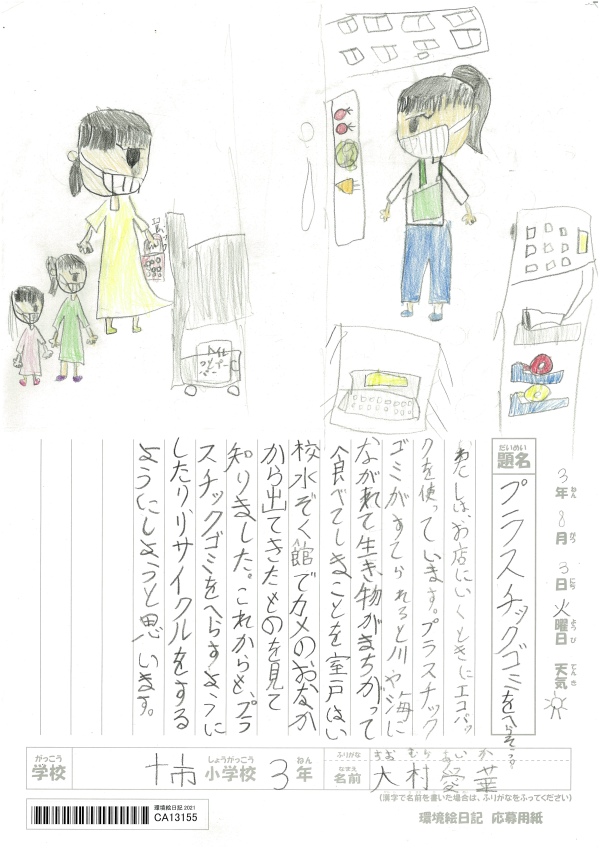 3年8月3日火曜日 天気
ねん がつ にち ようび てんき
だいめい
題名
プラスチックゴミをへらそう
わたしは、お店にいくときにエコバッ
クを使っています。プラスチック
ゴミがすてられると川や海に
ながれて生き物がまちがって
食べてしまことを室戸はい
校水ぞく館でカメのおなか
から出てきたものを見て
知りました。これからも、プラ
スチックゴミをへらすように
したりリサイクルをする
ようにしようと思います。
がっこう しょうがっこう ねん
学校 十市 小学校 3年
ふりがな おお むら あい か
なまえ
名前 大村愛葉
(漢字で名前を書いた場合は、ふりがなをふってください)
環境絵日記 応募用紙
環境絵日記 2021
CA13155